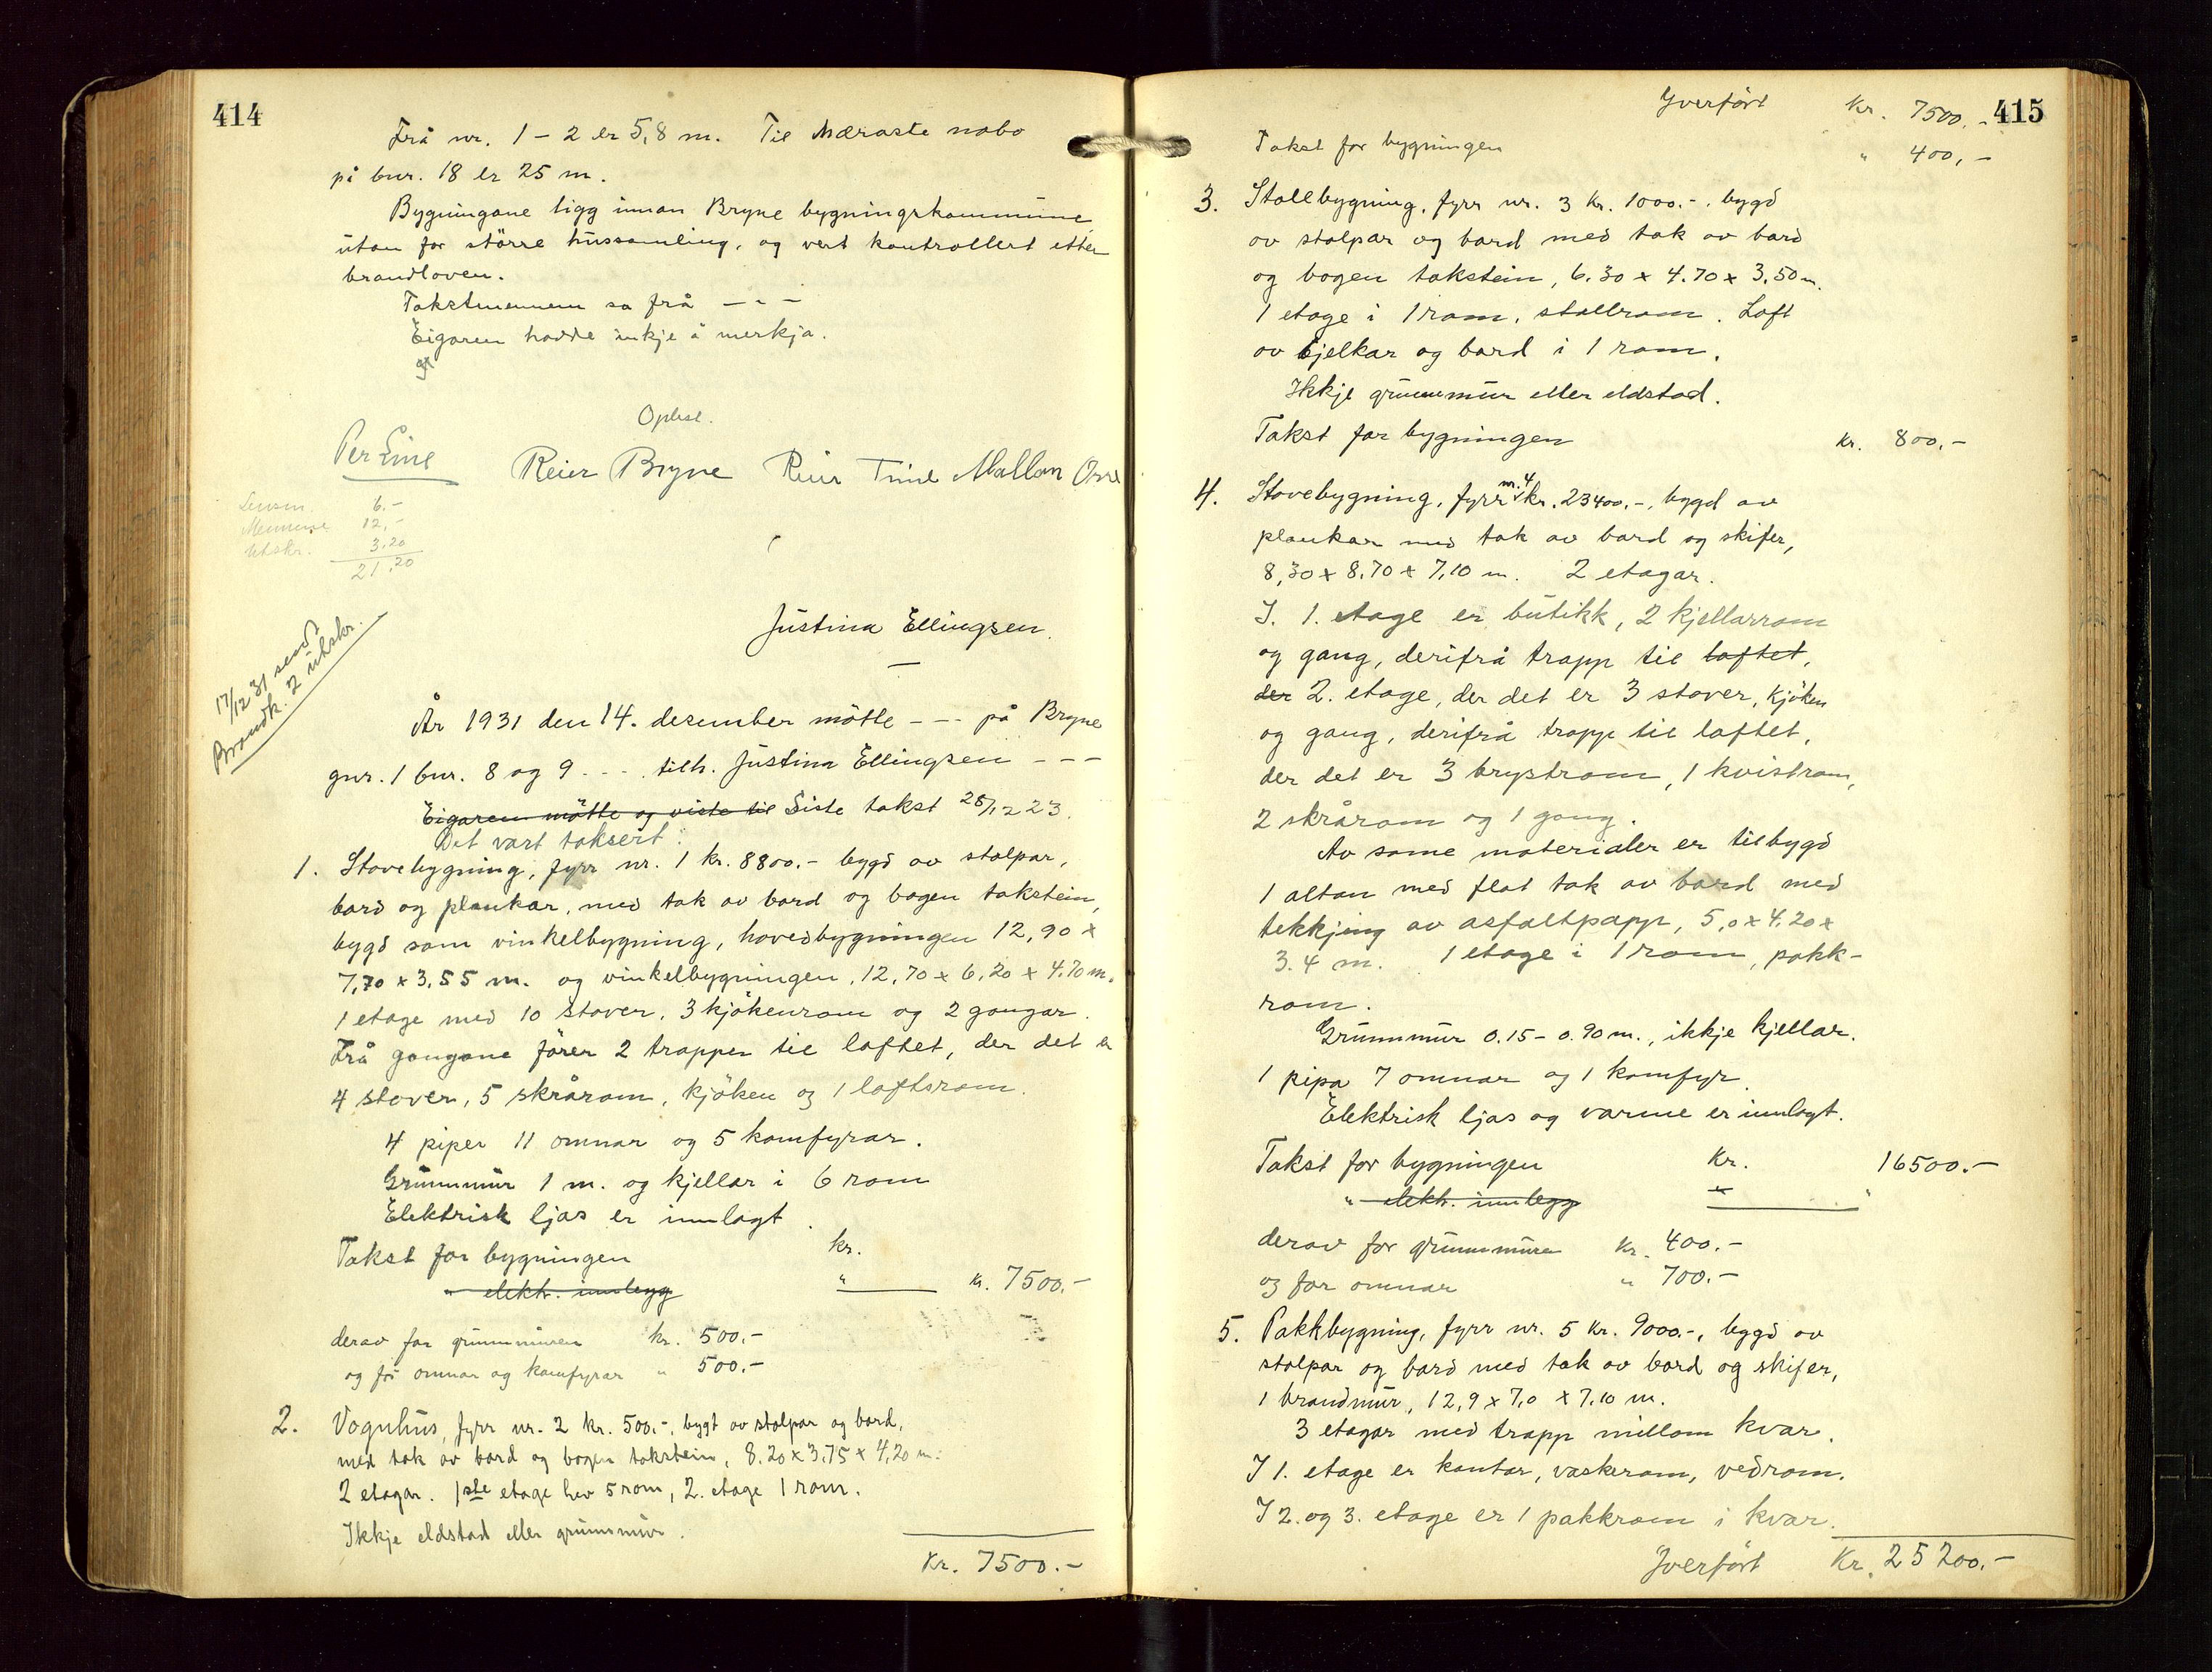 414
Frå nr. 1 - 2 er 5,8 m. Til næraste nabo
på bnr. 18 er 25 m.
Bygningane ligg innan Bryne bygningskommune
utan for större hussamling, og vert kontrollert etter
brandloven.
Takstmennene sa frå - " -
Eigaren hadde inkje å merkja.
Oplest.
Per Line Reier Bryne Reier Time Mallon Orre
Lensm. 6.-
Mennene 12,-
Utskr. 3,20
21,20
Justina Ellingsen.
17/12 31 sendt
Brandk. 2 utskr.
År 1931 den 14. desember mötte - - - på Bryne
gnr. 1 bnr. 8 og 9 - - - tilh. Justina Ellingsen - - -
Eigaren mötte og viste til Siste takst 28/12 23.
Det vart taksert:
1. Stovebygning, fyrr nr. 1 kr. 8800.- bygd av stolpar,
bord og plankar, med tak av bord og bogen takstein,
bygd som vinkelbygning, hovedbygningen 12,90 x
7,70 x 3,55 m. og vinkelbygningen, 12,70 x 6,20 x 4.70 m.
1 etage med 10 stover, 3 kjökenrom og 2 gongar.
Frå gongane förer 2 trapper til loftet, der det er
4 stover, 5 skrårom, kjöken og 1 loftsrom.
4 piper 11 omnar og 5 komfyrar.
Grunnmur 1 m. og kjellar i 6 rom
Elektrisk ljos er innlagt.
Takst for bygningen kr.
" elektr. innlegg " kr. 7500.-
derav for grunnmuren kr. 500.-
og for omnar og komfyrar " 500.-
2. Vognhus, fyrr nr. 2 kr. 500.-, bygt av stolpar og bord,
med tak av bord og bogen takstein, 8.20 x 3,75 x 4,20 m.
2 etagar. 1ste etage hev 5 rom, 2. etage 1 rom.
Ikkje eldstad eller grunnmur.
Kr. 7500.-
415
Yverfört Kr. 7500.-
Takst for bygningen " 400,-
3. Stallbygning, fyrr nr. 3 kr. 1000.-, bygd
av stolpar og bord med tak av bord
og bogen takstein, 6.30 x 4.70 x 3,50 m.
1 etage i 1 rom, stallrom. Loft
av bjelkar og bord i 1 rom.
Ikkje grunnmur eller eldstad.
Takst for bygningen kr. 800.-
4. Stovebygning, fyrr nr. 4 kr. 23400.-, bygd av
plankar med tak av bord og skifer,
8,30 x 8,70 x 7,10 m. 2 etagar.
I. 1. etage er butikk, 2 kjellarrom
og gang, derifrå trapp til loftet,
der 2. etage, der det er 3 stover, kjöken
og gang, derifrå trapp til loftet,
der det er 3 brystrom, 1 kvistrom,
2 skrårom og 1 gong.
Av same materialer er tilbygd
1 altan med flat tak av bord med
tekkjing av asfaltpapp, 5,0 x 4.20 x
3.4 m. 1 etage i 1 rom, pakk-
rom.
Grunnmur 0.15 - 0.90 m., ikkje kjellar.
1 pipa 7 omnar og 1 komfyr.
Elektrisk ljos og varme er innlagt.
Takst for bygningen Kr. 16500.-
" elektr. innlegg " "
derav for grunnmuren Kr. 400.-
og for omnar " 700.-
5. Pakkbygning, fyrr nr. 5 kr. 9000.-, bygd av
stolpar og bord med tak av bord og skifer,
1 brandmur, 12,9 x 7,0 x 7,10 m.
3 etagar med trapp millom kvar.
I 1. etage er kontor, vaskerom, vedrom.
I 2. og 3. etage er 1 pakkrom i kvar.
Yverfört Kr. 25200.-